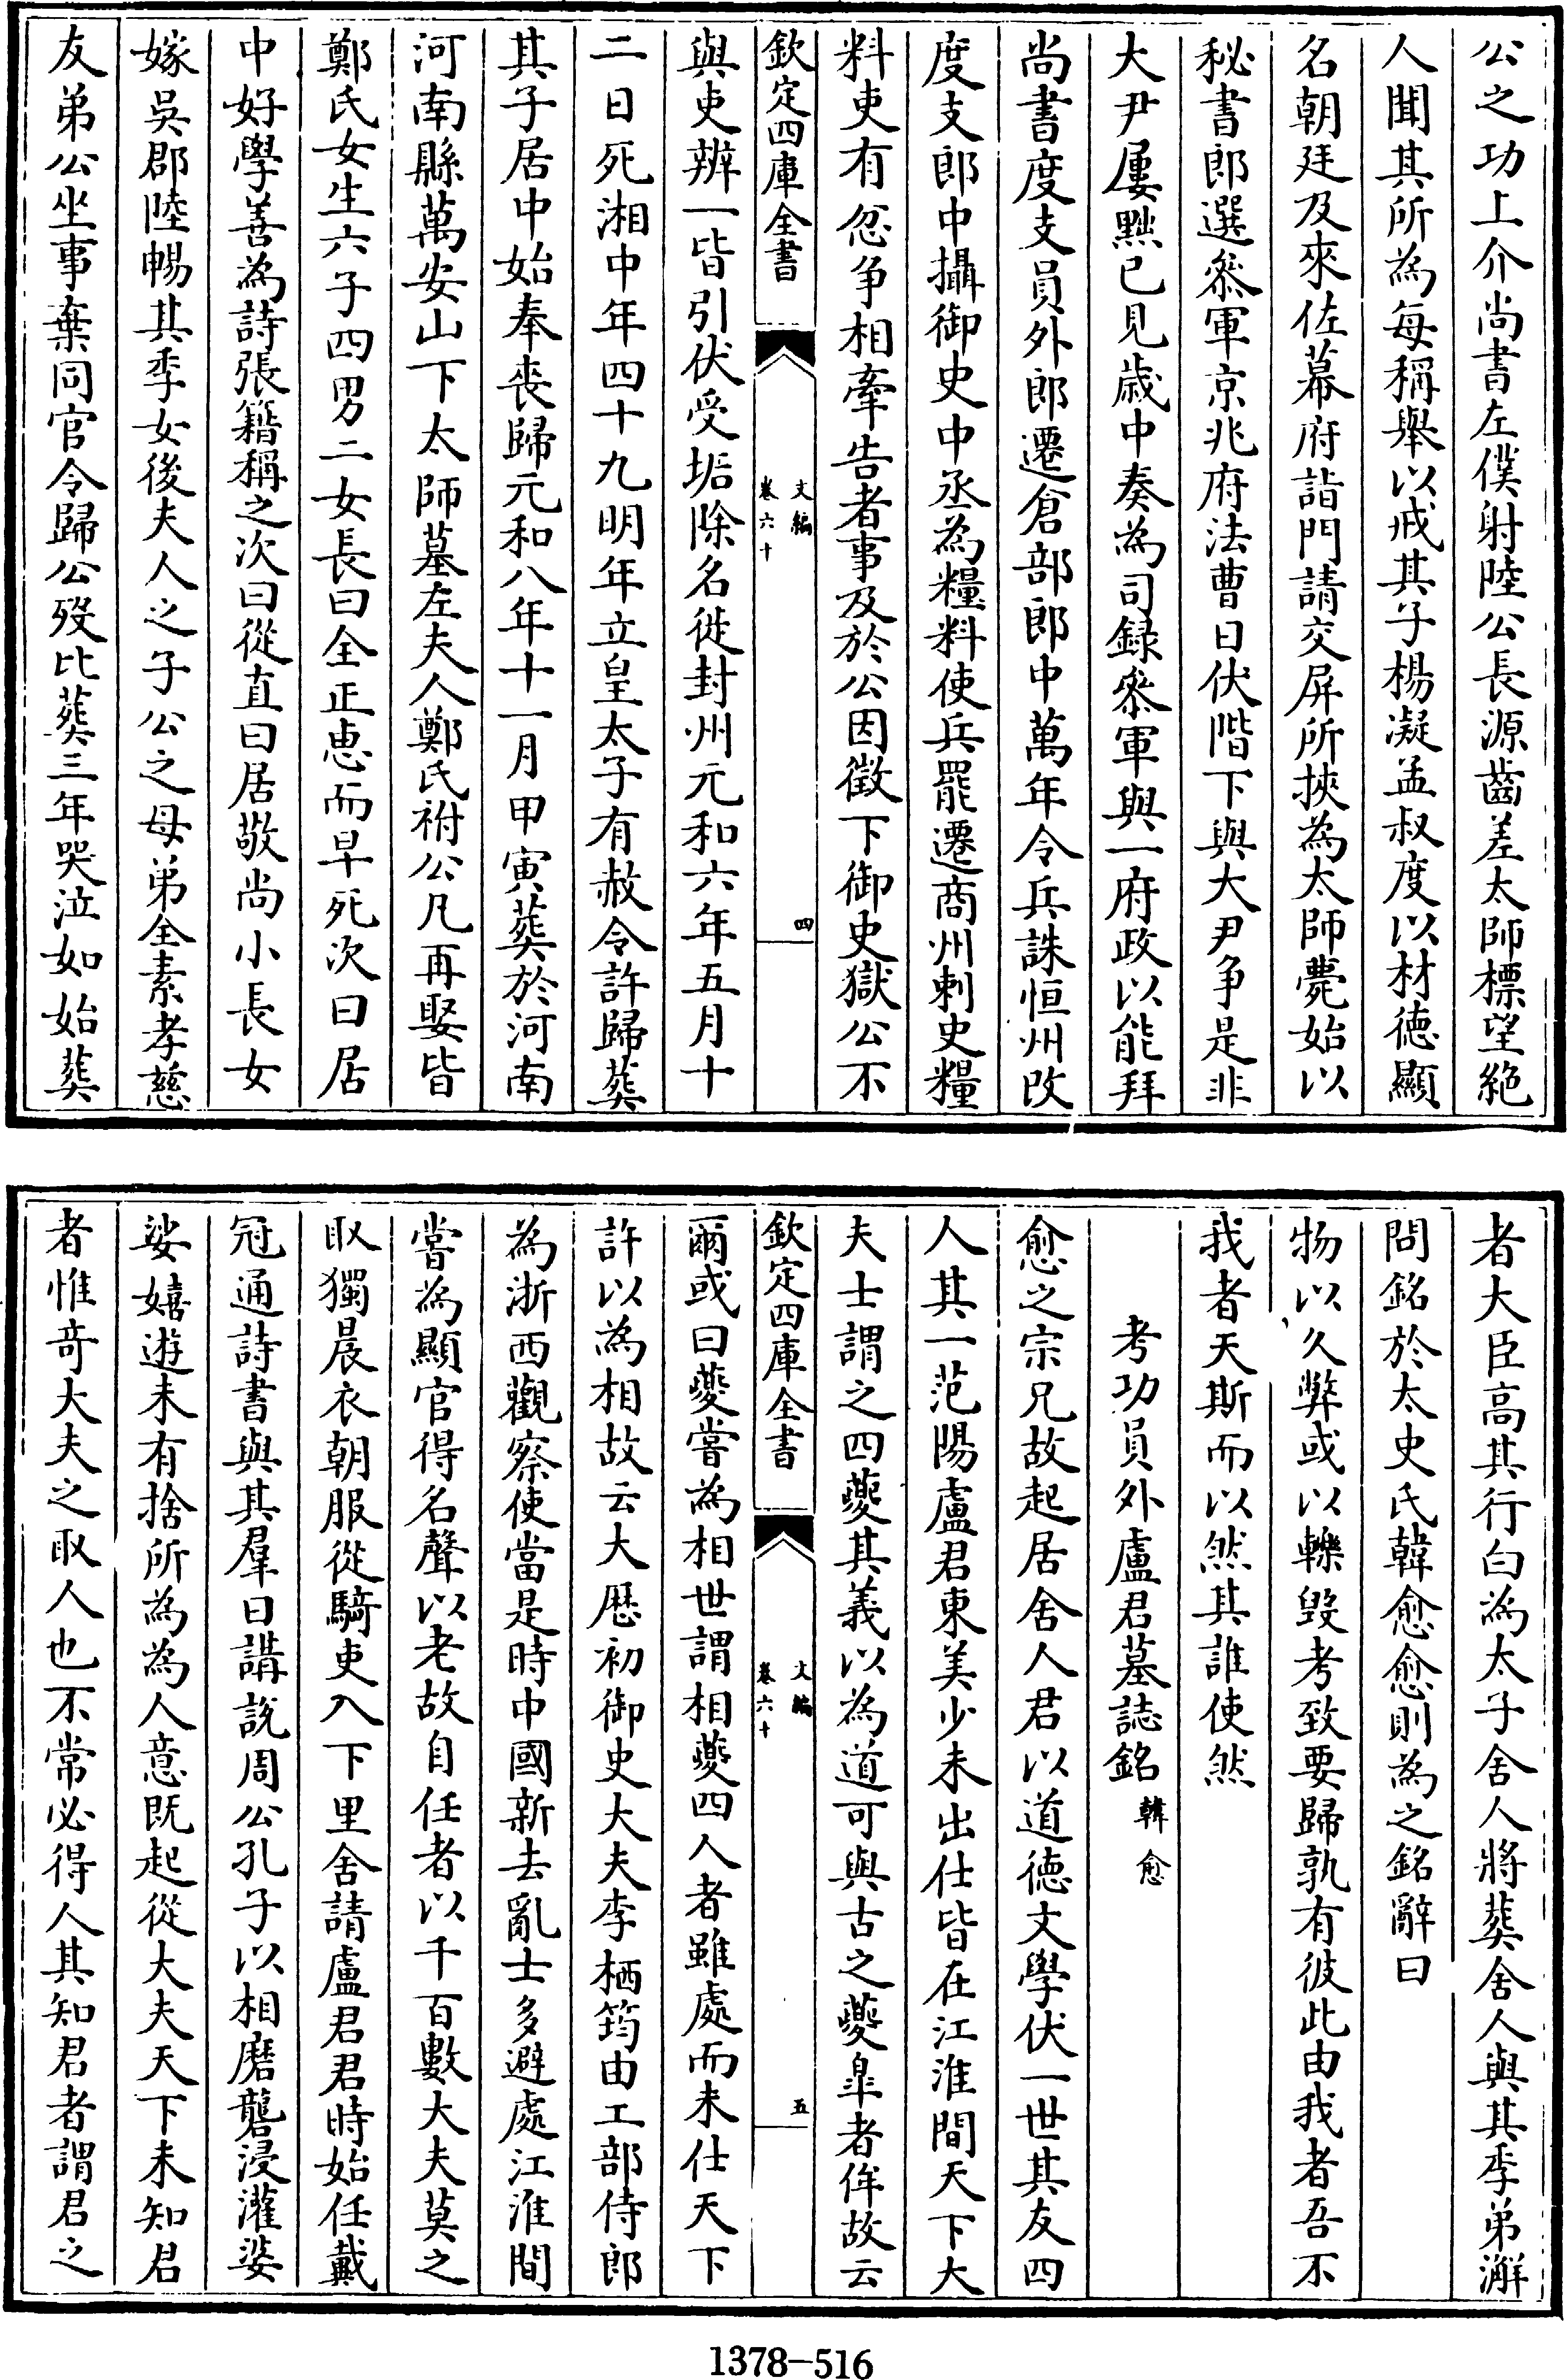 公之功上介尚書左僕射陸公長源齒差太師標望絶
人聞其所為每稱舉以戒其子楊凝孟叔度以材徳顯
名朝廷及來佐幕府詣門請交屏所挾為太師薨始以
秘書郎選叅軍京兆府法曹日伏階下與大尹争是非
大尹屢黜已見歳中奏為司録叅軍與一府政以能拜
尚書度支員外郎遷倉部郎中萬年令兵誅恒州改
度支郎中攝御史中丞為糧料使兵罷遷商州刺史糧
料吏有忿争相牽告者事及於公因徵下御史獄公不
欽定四庫全書
文編
卷六十
四
與吏辨一皆引伏受垢除名徙封州元和六年五月十
二日死湘中年四十九明年立皇太子有赦令許歸葬
其子居中始奉喪歸元和八年十一月甲寅葬於河南
河南縣萬安山下太師墓左夫人鄭氏祔公凡再娶皆
鄭氏女生六子四男二女長曰全正恵而早死次曰居
中好學善為詩張籍稱之次曰從直曰居敬尚小長女
嫁吳郡陸暢其季女後夫人之子公之母弟全素孝慈
友弟公坐事棄同官令歸公歿比葬三年哭泣如始葬
者大臣高其行白為太子舍人將葬舍人與其季弟澥
問銘於太史氏韓愈愈則為之銘辭曰
物以久弊或以轢毀考致要歸孰有彼此由我者吾不
我者天斯而以然其誰使然
考功員外盧君墓誌銘 韓愈
愈之宗兄故起居舍人君以道徳文學伏一世其友四
人其一范陽盧君東美少未出仕皆在江淮間天下大
夫士謂之四夔其義以為道可與古之夔臯者侔故云
欽定四庫全書
文編
卷六十
五
爾或曰夔嘗為相世謂相夔四人者雖處而未仕天下
許以為相故云大厯初御史大夫李栖筠由工部侍郎
為浙西觀察使當是時中國新去亂士多避處江淮間
嘗為顯官得名聲以老故自任者以千百數大夫莫之
取獨晨衣朝服從騎吏入下里舍請盧君君時始任戴
冠通詩書與其羣日講説周公孔子以相磨礱浸灌婆
娑嬉遊未有捨所為為人意既起從大夫天下未知君
者惟奇大夫之取人也不常必得人其知君者謂君之
1378-516